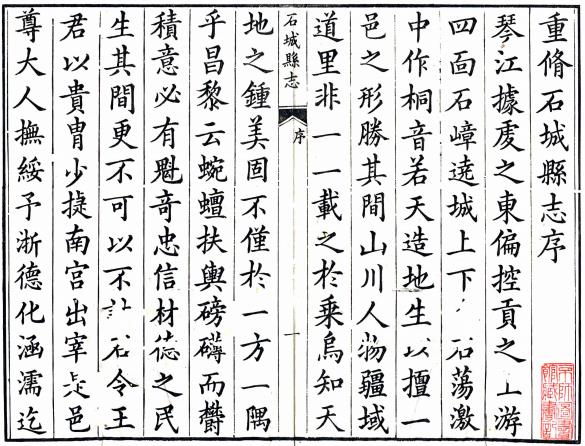 重脩石城縣志序
琴江據䖍之東偏控貢之上游
四面石嶂遶城上下石蕩激
中作桐音若天造地生以擅一
邑之形勝其間山川人物疆域
道里非一一載之於乗烏知天
石城縣志
序
一
地之鍾美固不僅於一方一隅
乎昌黎云蜿蟺扶輿磅礴而欝
積意必有魁竒忠信材德之民
生其間更不可以不 令王
君以貴胄少㨗南宮出宰是邑
尊大人撫綏予浙德化涵濡迄